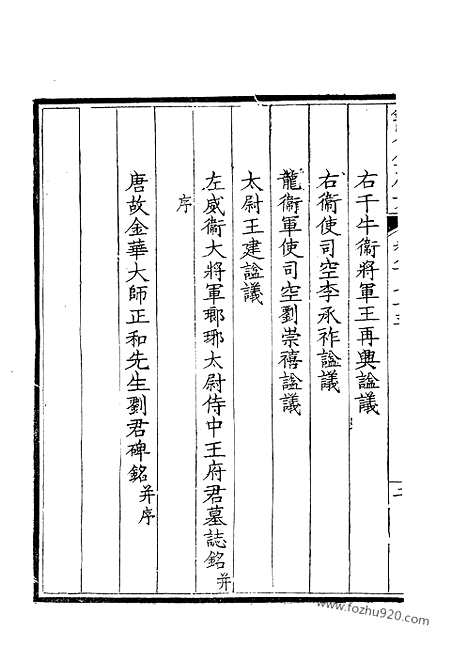 右千牛衞將軍王再興諡議
右衞使司空李承祚諡議
龍衞軍使司空劉崇禧諡議
太尉王建諡議
左威衞大將軍瑯琊太尉侍中王府君墓誌銘并
序
唐故金華大師正和先生劉君碑銘并序
www.fozhu920.com